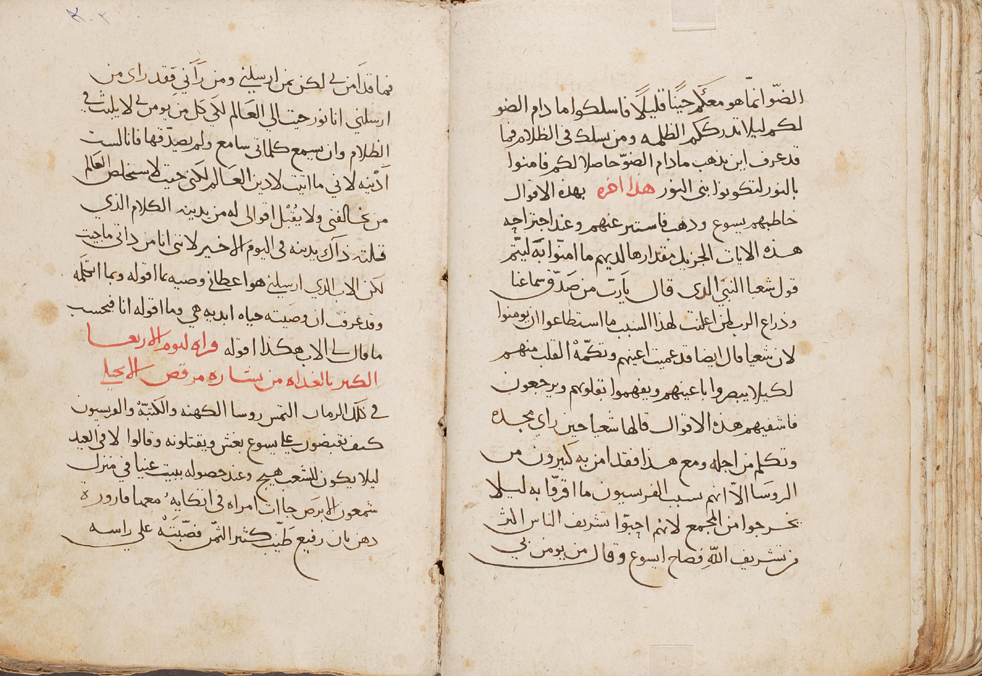 الضوّ انمّا هو معكم حينًا قليلًا فاسلكوا ما دام الضو
لكم ليلا تدرككم الظلمه ومن سلك في الظلام فما
قد عرف اين يذهب مادام الضوّ حاصلا لكم فامنوا
بالنور لتكونوا بني النور هذا اخره بهذه الاقوال
خاطبهم يسوع ودهب فاستتر عنهم وعند اجتراحِه
هده الايات الجزيل مقدارها لديهم ما امنوا به ليتم
قول شعيا النبي الذي قال يا رَب من صَدّق سماعنا
وذراع الرب لمن اعلنت لهذا السبب ما استطاعوا ان يومنوا
لان شعيا قال ايضا قد عميت اعينهم وتكمّه القلب منهم
لكيلا يبصروا باعينهم ويفهموا بقلوبهم ويرجعون
فاشفيهم هذه الاقوال قالها شعيا حين راي مجده
وتكلم من اجله ومع هذا فقد امن به كثيرون من
الروسا الّا انهم بسبب الفريسيون ما اقرّوا به ليلا
يخرجوا من المجمع لانهم احبّوا تشريف الناس اكثر
من تشريف الله فصاح ايسوع وقال من يومن بي
فما قد امن بي لكن بمن ارسلني ومن رآني فقد راى من
ارسلني انا نور جيت الي العَالم لكي كل من يومن بي لا يلبث في
الظلام وان يسمع كلماتي سامع ولم يصدّقها فانا لست
ادينه لاني ما اتيت لادين العالم لكني جيت لاستخلص العالم
من يخالفني ولا يقبل اقوالي له من يدينه الكلام الذي
قلته ذاك يدينه في اليوم الاخير لانني انا من ذاتي ما جيت
لكن الاب الذي ارسلني هو اعطاني وصيه بما اقوله وبما اتكلمه
وقد عرف ان وصيته حياه ابديه هي وما اقوله انا فبحسب
ما قال لي الاب هكذا اقوله قراه ليوم الاربعا
الكبير بالغداه من بشاره مرقص الانجيلي
في ذلك الزمان التمس روسا الكهنه والكتبَة والفريسيون
كيف يقبضون على يسوع بغش ويقتلونه وقالوا لا في العيد
ليلا يكون للشعب هيج وعند حصوله ببيت عنيا في منزل
شمعون الابرَص جاات امراه في اتكايه معها قاروره
دهن بان رفيع طيّب كثير الثمن فصَبّتَهْ علي راسه